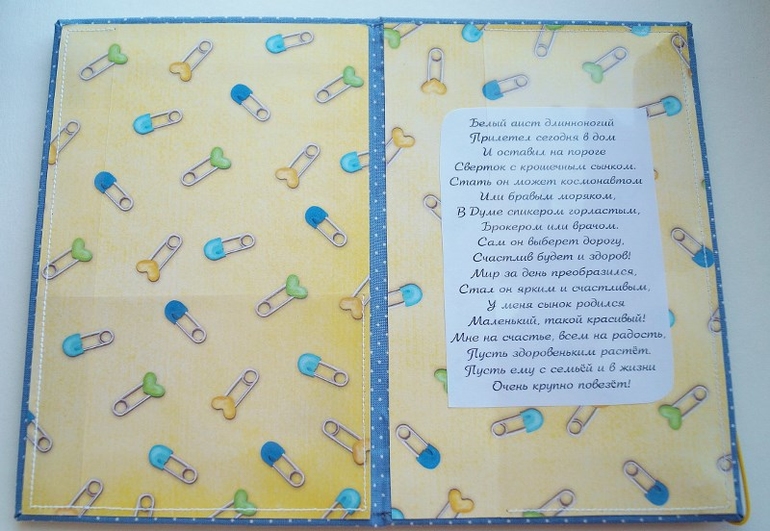 Белый аист длинноногий
Прилетел сегодня в дом
И оставил на пороге
Сверток с крошечным сынком.
Стать он может космонавтом
Или бравым моряком,
В Думе спикером горластым,
Брокером или врачом.
Сам он выберет дорогу,
Счастлив будет и здоров!
Мир за день преобразился,
Стал он ярким и счастливым,
У меня сынок родился
Маленький, такой красивый!
Мне на счастье, всем на радость,
Пусть здоровеньким растёт.
Пусть ему с семьёй и в жизни
Очень крупно повезёт!